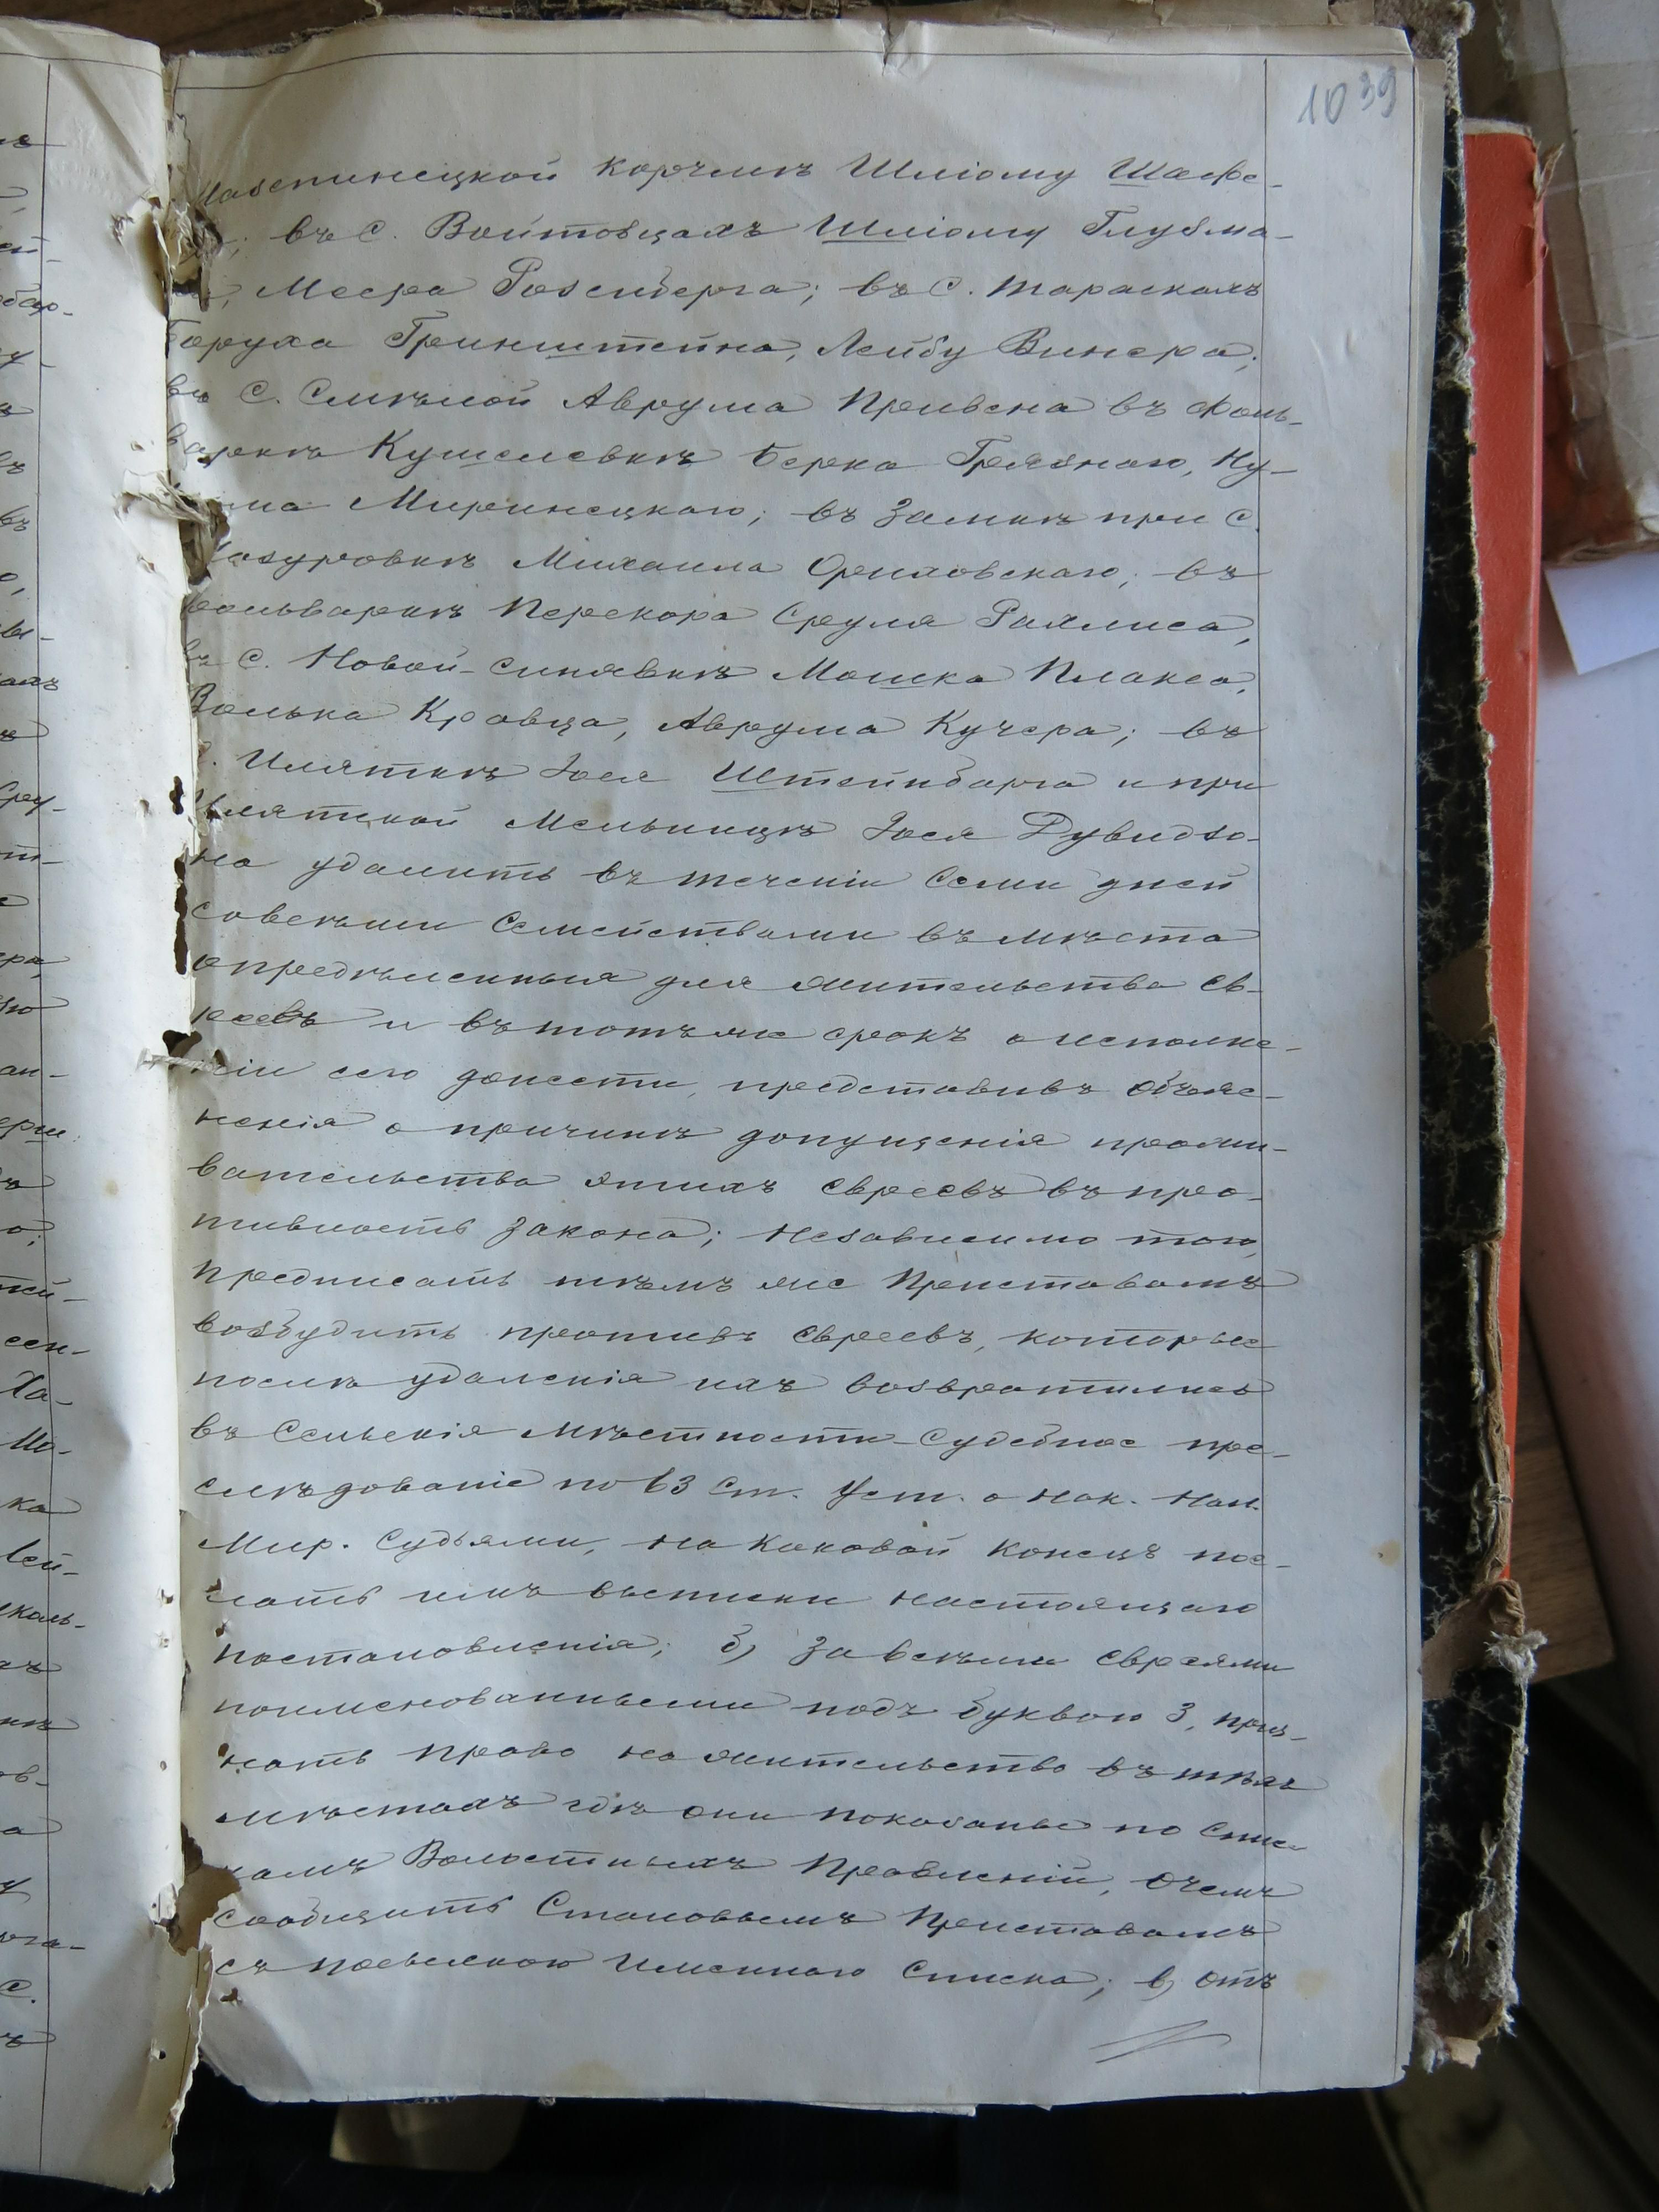 1039
Мазепинецкой корчмѣ Шліому Шафе-
въ С. Войтовцахъ Шліому Глузма-
Меера Розенберга; въ С. Тараскахъ
Боруха Гринштейна, Лейбу Винера;
въ С. Смѣлой Аврума Превена въ Фоль-
варкѣ Кушелевкѣ Берка Грязнаго, Ну-
хима Миринецкаго; въ Замкѣ при С.
Мазуровкѣ Михаила Ориховскаго; въ
Фольваркѣ Перекора Сруля Рахлиса,
въ С. Новой-Синявкѣ Мошка Плакса,
Волька Кравца, Аврума Кучера; въ
С. Иляткѣ Іося Штейнбарга и при
Иляткой Мельницѣ Іося Дувидзо-
на удалить въ теченіи Семи дней
совсѣми Семействами въ мѣста
опредѣленныя для жительства Ев-
реевъ и въ тотъ же срокъ о исполне-
ніи сего донести, представивъ объяс-
ненія о причинѣ допущенія прожи-
вательства этихъ евреевъ въ про-
тивность закона; независимо того,
предписать тѣмъ же Приставамъ
возбудить противъ евреевъ, которые
послѣ удаленія ихъ возвратились
въ Сельскія мѣстности Судебное пре-
слѣдованіе по 63 Ст. Уст. о нак. нал.
Мир. Судьями, на каковой конецъ пос-
лать имъ выписки настоящаго
постановленія; б) За всѣми евреями
поименованными подъ буквою З, приз-
нать право на жительство въ тѣхъ
мѣстахъ гдѣ они показаны по Спис-
камъ Волостныхъ Правленій, о чемъ
сообщить Становымъ Приставамъ
съ посылкою Именнаго Списка; в) отъ